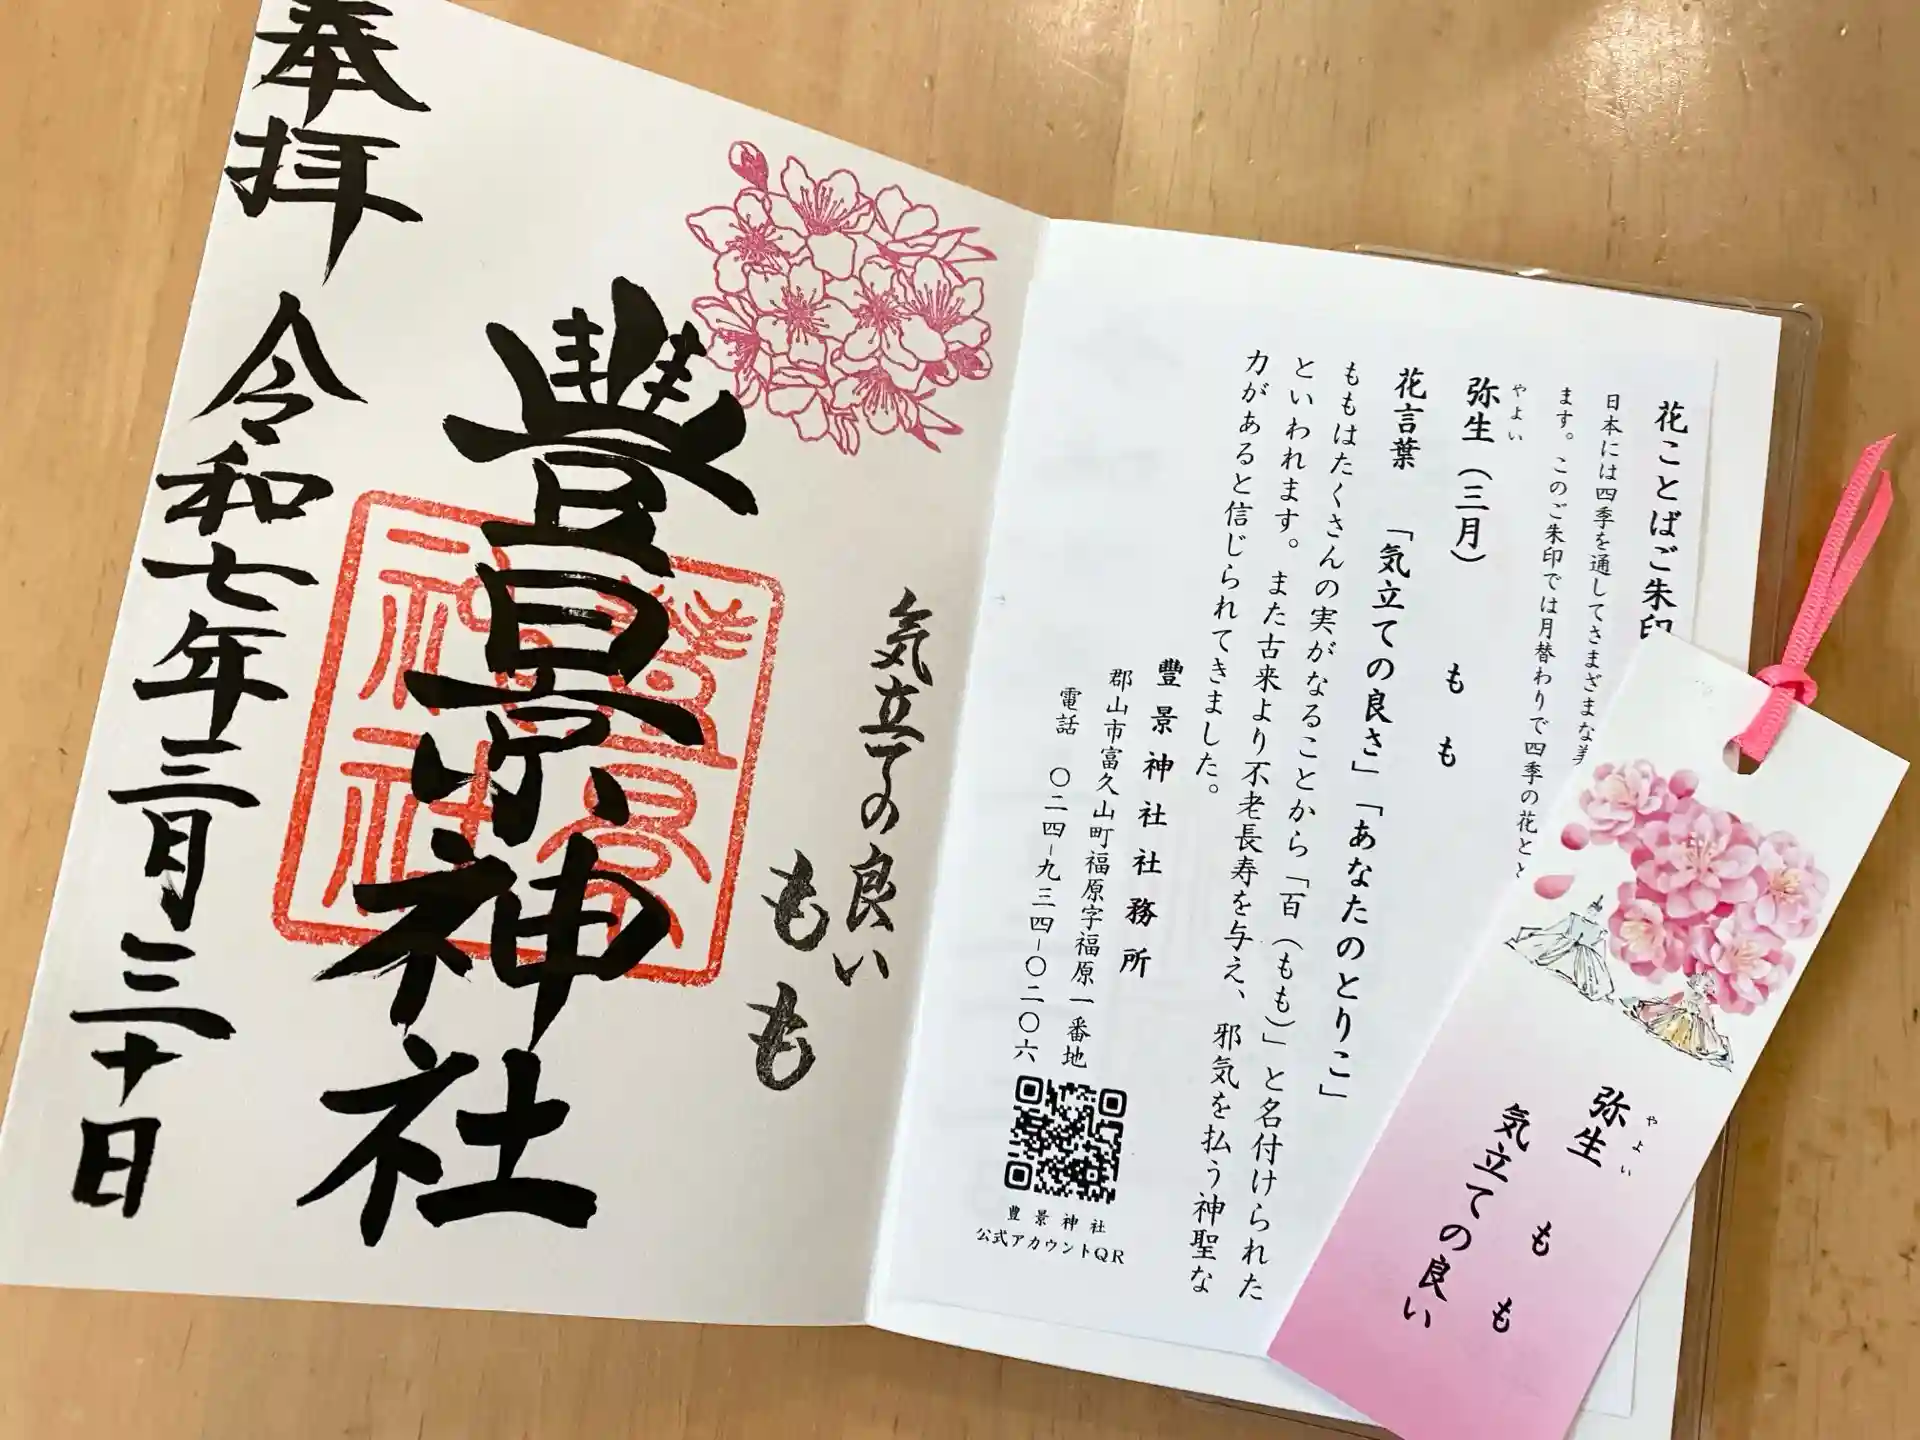 奉拝
令和七年三月三十日
豊景神社
気立ての良い
もも
花ことばご朱印
日本には四季を通してさまざまな美
ます。このご朱印では月替わりで四季の花とと
やよい
弥生（三月）
もも
花言葉　「気立ての良さ」「あなたのとりこ」
ももはたくさんの実がなることから「百（もも）」と名付けられた
といわれます。また古来より不老長寿を与え、邪気を払う神聖な
力があると信じられてきました。
豊景神社務所
郡山市富久山町福原字福原一番地
電話　〇二四-九三四-〇二〇六
豊景神社
公式アカウントQR
やよい
弥生　もも
気立ての良い